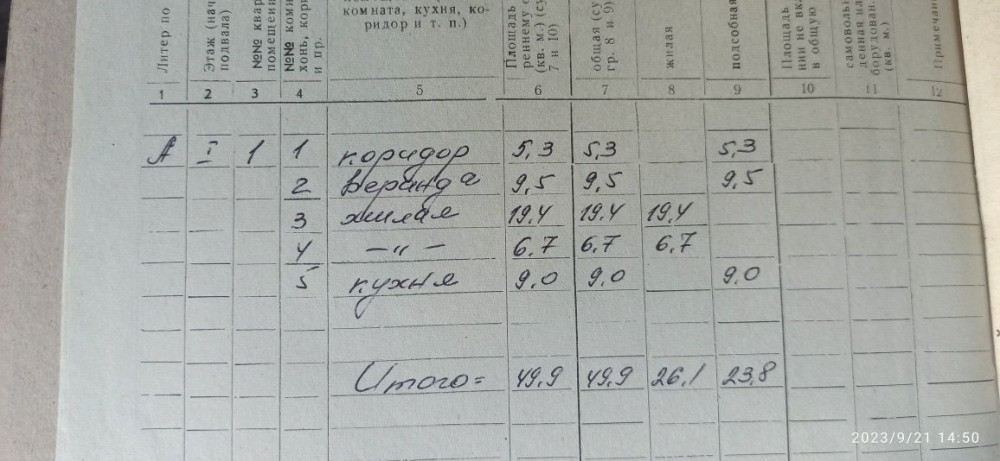 комната, кухня, ко-
ридор и т. п.)
Литер по
Этаж (нач
подвала)
№№ квар
помещени
№№ комн
хонь, кори
и пр.
Площадь
реннему о
(кв. м.) (су
7 и 10)
общая (су
гр. 8 и 9)
жилая
подсобная
Площадь
нии не вкл
в общую
самовольн
денная ил
борудован.
(кв. м.)
Примечан
1 2 3 4 5 6 7 8 9 10 11 12
А I 1 1 коридор 5,3 5,3 5,3
2 веранда 9,5 9,5 9,5
3 жилая 19,4 19,4 19,4
4 —"— 6,7 6,7 6,7
5 кухня 9,0 9,0 9,0
Итого= 49,9 49,9 26,1 23,8
2023/9/21 14:50